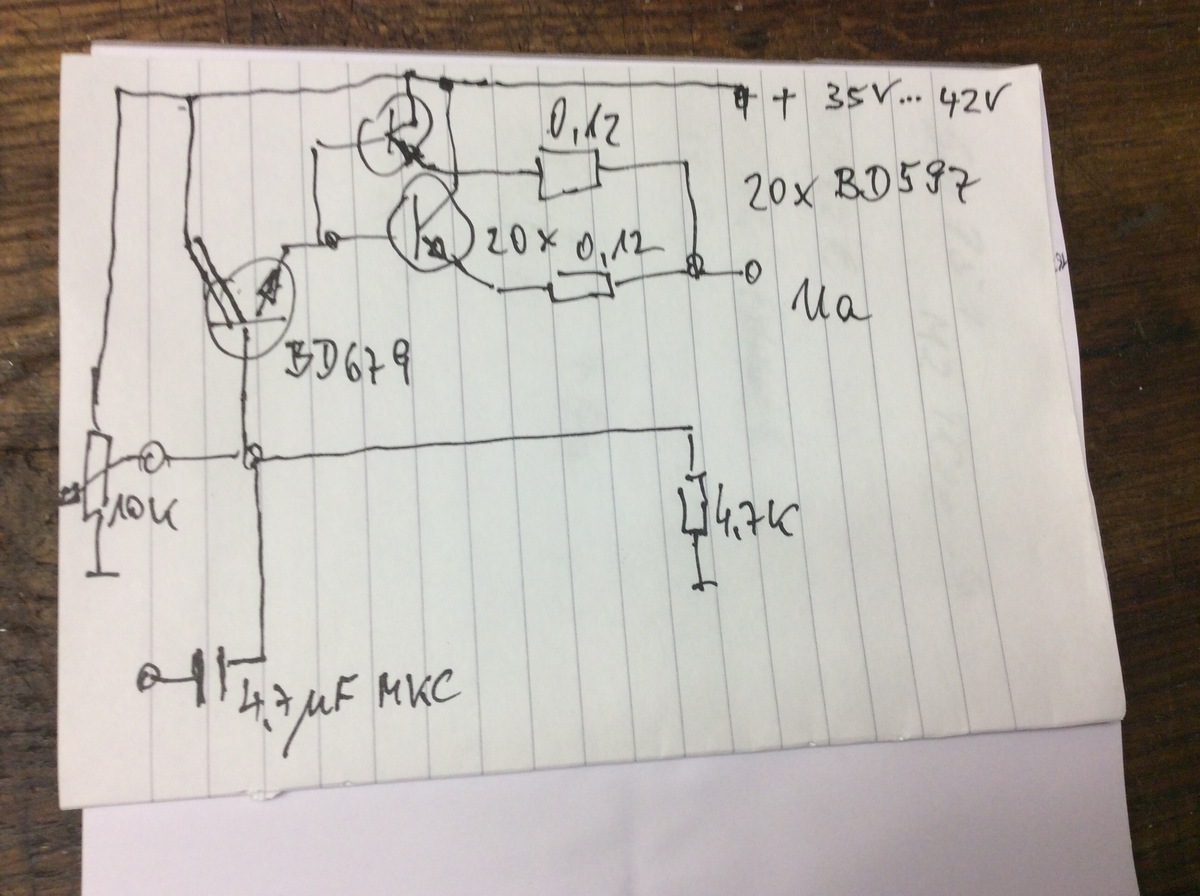 + 35V... 42V
0,12
20x BD597
20x 0,12
Ua
BD679
10K
4,7K
4,7µF MKC